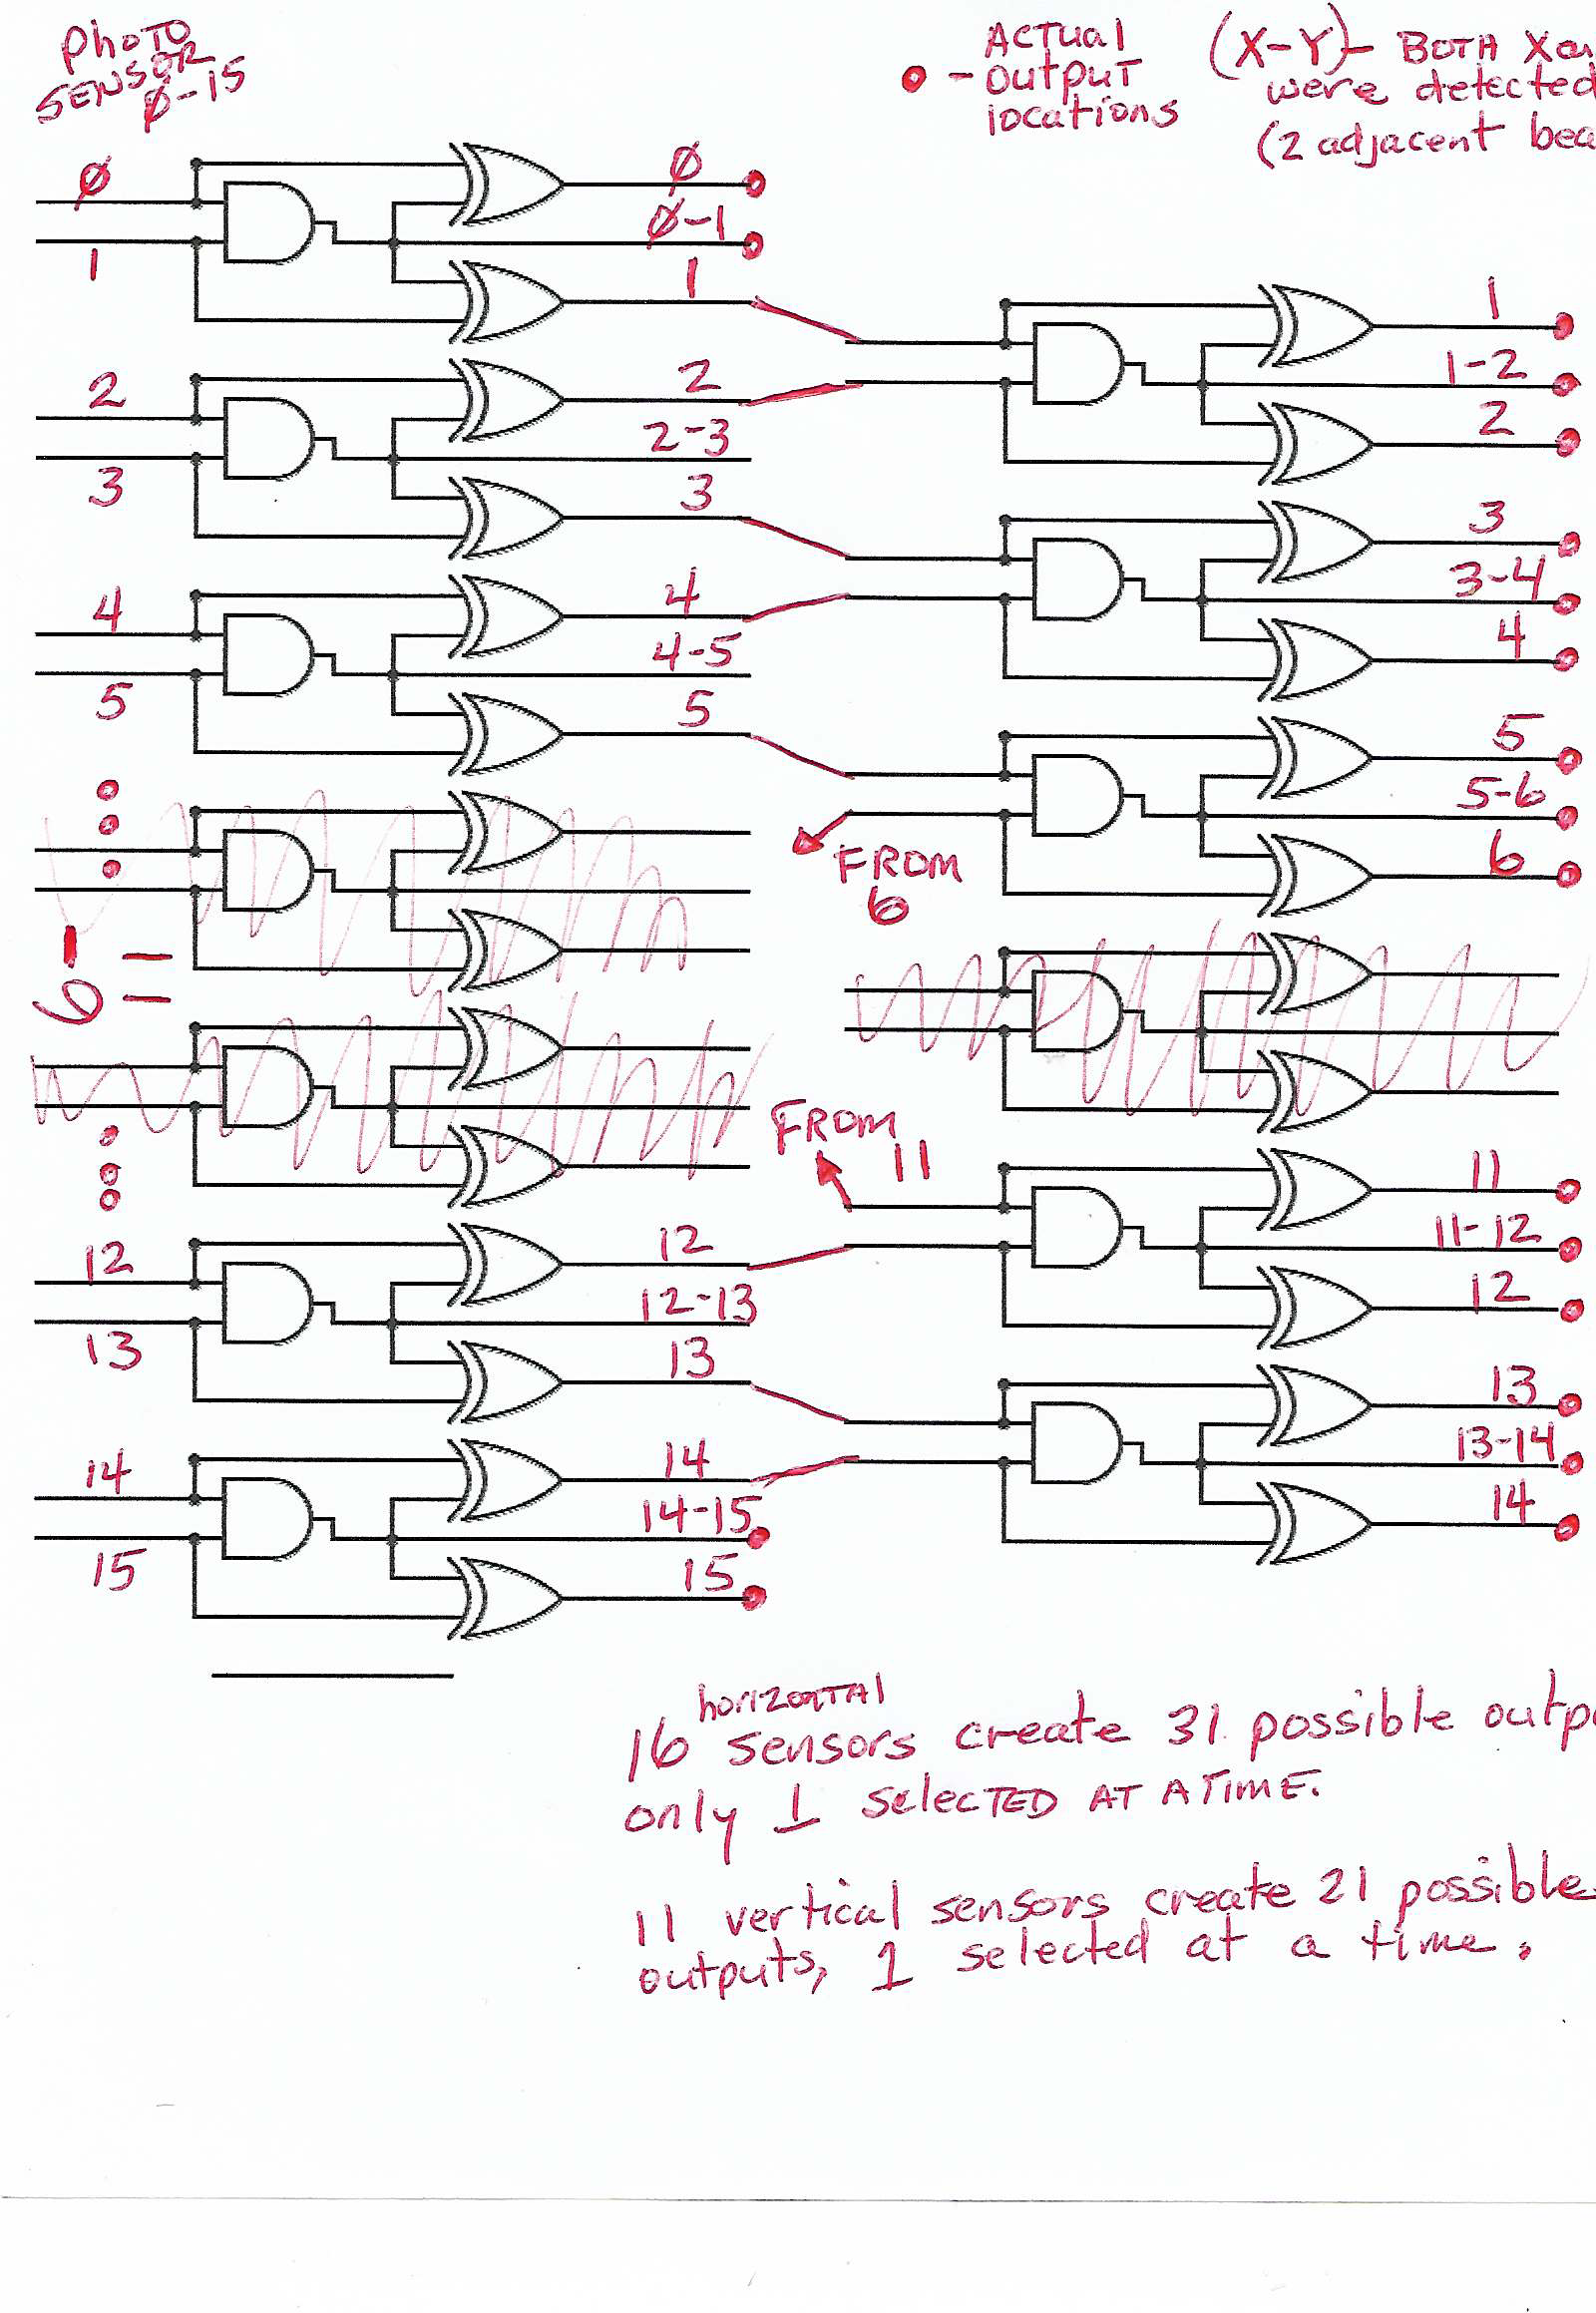 PHOTO
SENSOR
0-15
ACTUAL
- OUTPUT
locations
(X-Y)- BOTH X
were detected
(2 adjacent
0
1
0
0-1
1
1
1-2
2
2
3
2
2-3
3
3
3-4
4
4
5
4
4-5
5
5
5-6
6
FROM
6
6-11
FROM
11
11
11-12
12
12
13
12
12-13
13
13
13-14
14
14
15
14
14-15
15
horizontal
16 sensors create 31 possible
only 1 selected AT A TIME.
11 vertical sensors create 21 possible
outputs, 1 selected at a time.